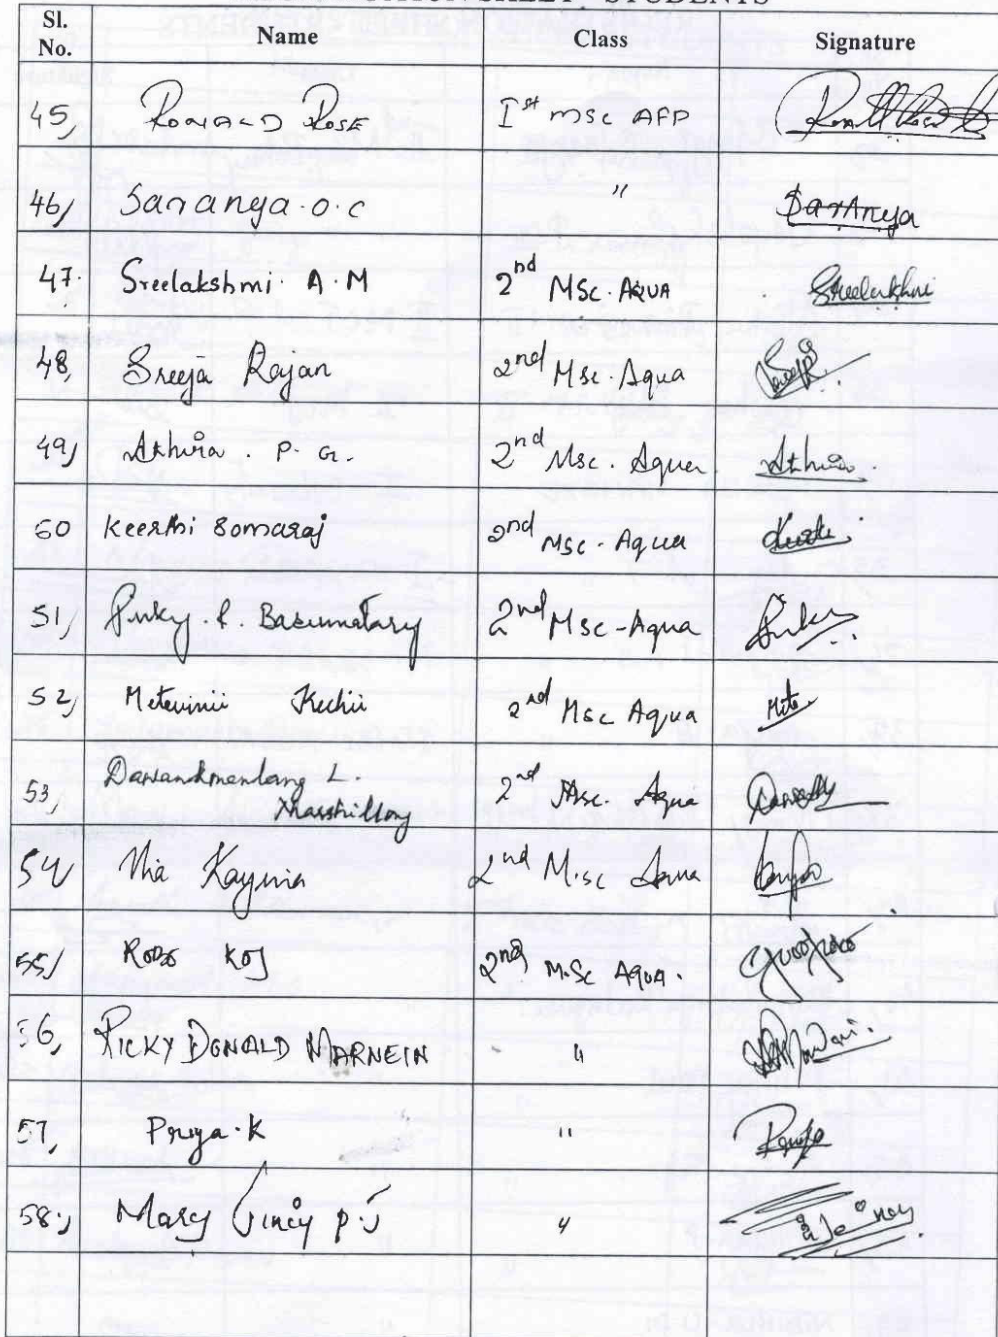 STUDENTS
Sl. No. Name Class Signature
45, RONALD ROSE Ist MSC AFP
46, Saranya.O.C " Saranya
47. Sreelakshmi. A.M 2nd MSc. AQUA Sreelakshmi
48, Sreeja Rajan 2nd Msc. Aqua
49, Athira. P.G. 2nd Msc. Aqua Athira.
50 Keerthi Somaraj 2nd Msc. Aqua
51, Pinky. R. Basumatary 2nd Msc-Aqua
52, Metevinii Kechii 2nd Msc Aqua Mite
53, L. 2nd Msc. Aqua
54, 2nd M.sc Aqua
55, KOJ 2nd M.Sc AQUA.
56, RICKY DONALD NARNEIN "
57, Priya.K "
58, Mary Jincy P.J "